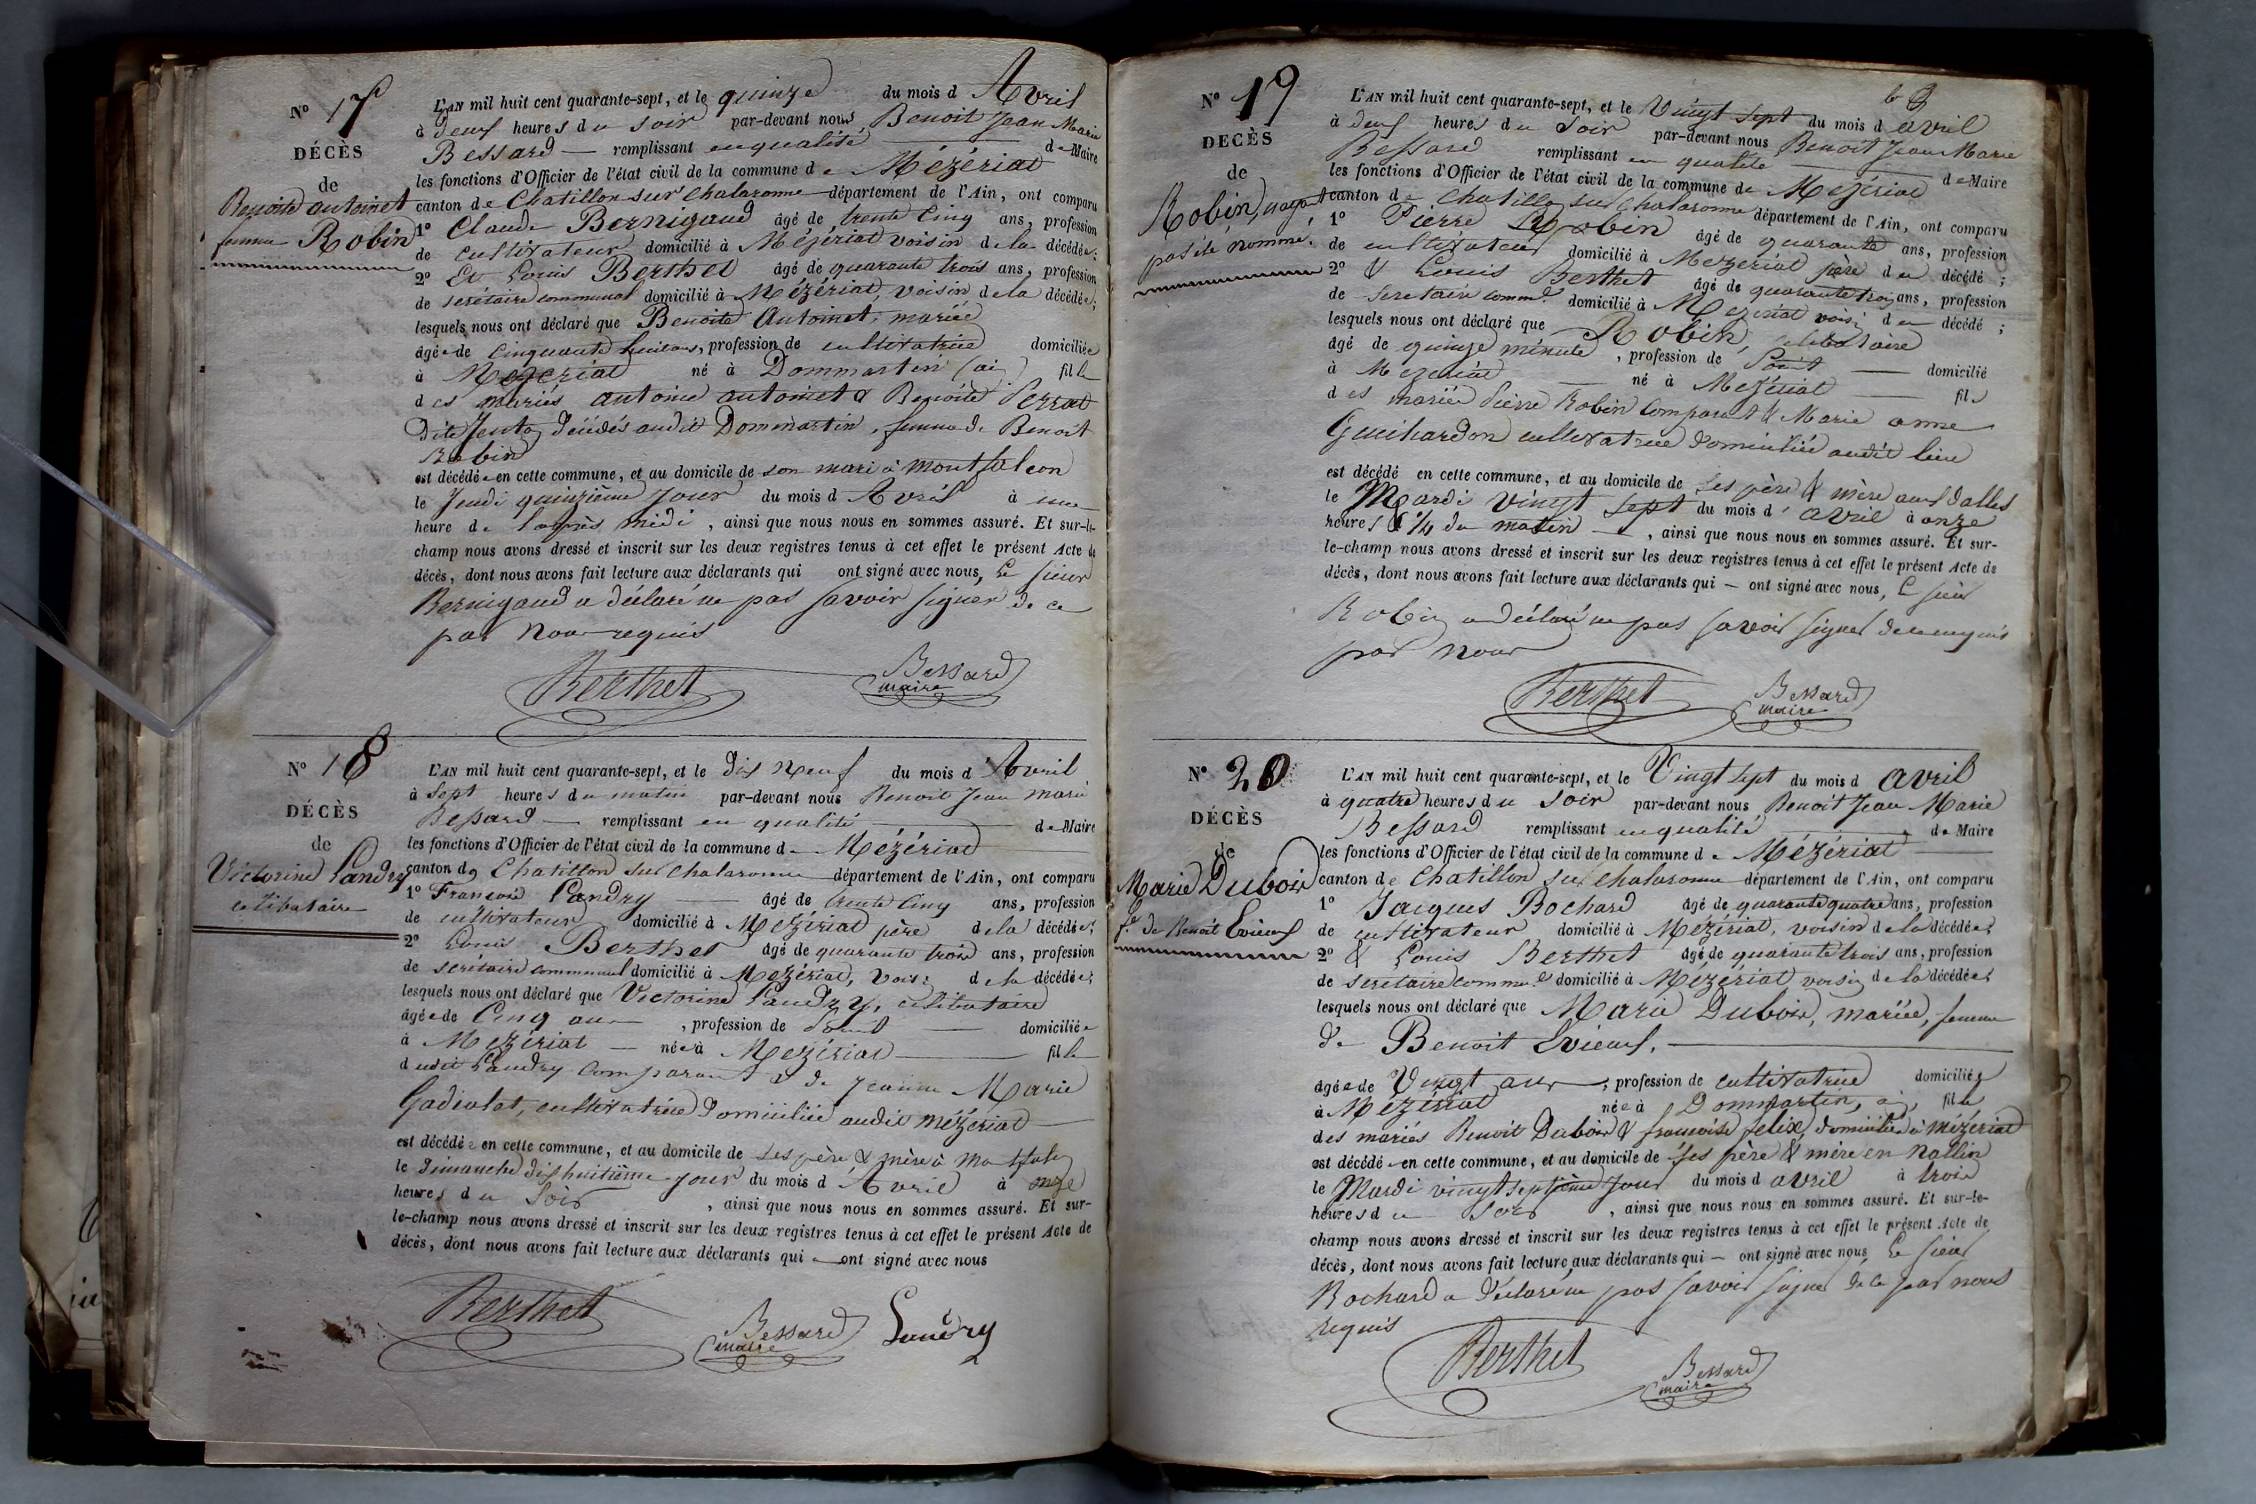 N° 17
DÉCÈS
de
Benoite antoinet
femme Robin
L'AN mil huit cent quarante-sept, et le quinze du mois d Avril
à deux heures du soir par-devant nous Benoit Jean Marie
Bessard — remplissant en qualité de Maire
les fonctions d'Officier de l'état civil de la commune de Mézériat
canton de Chatillon sur Chalaronne département de l'Ain, ont comparu
1° Claude Bernigaud âgé de trente cinq ans, profession
de cultivateur domicilié à Mézériat voisin de la décédée;
2° Et Louis Berthet âgé de quarante trois ans, profession
de secrétaire communal domicilié à Mézériat, voisin de la décédée;
lesquels nous ont déclaré que Benoite Antoinet, mariée
âgée de cinquante huit ans, profession de cultivatrice domiciliée
à Mézériat né à Dommartin (ain) fille
des mariés antoine antoinet & Benoite Perrat
dite décédés audit Dommartin, femme de Benoit
Robin
est décédée en cette commune, et au domicile de son mari à montfalcon
le Jeudi quinzième jour du mois d Avril à une
heure de l'après midi, ainsi que nous nous en sommes assuré. Et sur-le-
champ nous avons dressé et inscrit sur les deux registres tenus à cet effet le présent Acte de
décès, dont nous avons fait lecture aux déclarants qui ont signé avec nous, Le sieur
Bernigaud a déclaré ne pas savoir signer de ce
par nous requis
Berthet Bessard
maire
N° 18
DÉCÈS
de
Victorine Landry
célibataire
L'AN mil huit cent quarante-sept, et le dix neuf du mois d Avril
à sept heures du matin par-devant nous Benoit Jean Marie
Bessard — remplissant en qualité de Maire
les fonctions d'Officier de l'état civil de la commune de Mézériat
canton de Chatillon sur Chalaronne département de l'Ain, ont comparu
1° François Landry âgé de trente cinq ans, profession
de cultivateur domicilié à Mézériat père de la décédée;
2° Louis Berthet âgé de quarante trois ans, profession
de secrétaire communal domicilié à Mézériat, voisin de la décédée;
lesquels nous ont déclaré que Victorine Landry, célibataire
âgée de Cinq ans, profession de domiciliée
à Mézériat — née à Mézériat fille
dudit Landry comparant & de Jeanne Marie
Gadiolet, cultivatrice domiciliée audit mézériat
est décédée en cette commune, et au domicile de ses père & mère à
le dimanche dix huitième jour du mois d Avril à onze
heures du soir, ainsi que nous nous en sommes assuré. Et sur-
le-champ nous avons dressé et inscrit sur les deux registres tenus à cet effet le présent Acte de
décès, dont nous avons fait lecture aux déclarants qui — ont signé avec nous
Berthet Bessard Landry
maire
N° 19
DÉCÈS
de
Robin, n'ayant
pas été nommé.
L'AN mil huit cent quarante-sept, et le Vingt sept du mois d avril
à deux heures du soir par-devant nous Benoit Jean Marie
Bessard remplissant en qualité de Maire
les fonctions d'Officier de l'état civil de la commune de Mézériat
canton de Chatillon sur Chalaronne département de l'Ain, ont comparu
1° Pierre Robin âgé de quarante ans, profession
de cultivateur domicilié à Mézériat père du décédé;
2° & Louis Berthet âgé de quarante trois ans, profession
de secrétaire comm.l domicilié à Mézériat voisin du décédé;
lesquels nous ont déclaré que Robin, célibataire
âgé de quinze minutes, profession de — domicilié
à Mézériat — né à Mézériat — fils
des mariés Pierre Robin comparant & Marie anne
Guichardon cultivatrice domiciliée audit lieu
est décédé en cette commune, et au domicile de ses père & mère
le Mardi vingt sept du mois d' avril à onze
heures & 1/4 du matin, ainsi que nous nous en sommes assuré. Et sur-
le-champ nous avons dressé et inscrit sur les deux registres tenus à cet effet le présent Acte de
décès, dont nous avons fait lecture aux déclarants qui — ont signé avec nous, Le sieur
Robin a déclaré ne pas savoir signer de ce requis
par nous
Berthet Bessard
maire
N° 20
DÉCÈS
de
Marie Dubois
f.e de Benoit Evieux
L'AN mil huit cent quarante-sept, et le Vingt sept du mois d avril
à quatre heures du soir par-devant nous Benoit Jean Marie
Bessard remplissant en qualité de Maire
les fonctions d'Officier de l'état civil de la commune de Mézériat
canton de Chatillon sur Chalaronne département de l'Ain, ont comparu
1° Jacques Bochard âgé de quarante quatre ans, profession
de cultivateur domicilié à Mézériat, voisin de la décédée;
2° & Louis Berthet âgé de quarante trois ans, profession
de secrétaire comm.l domicilié à Mézériat voisin de la décédée;
lesquels nous ont déclaré que Marie Dubois, mariée, femme
de Benoit Evieux.
âgée de Vingt ans, profession de cultivatrice domiciliée
à Mézériat née à Dommartin, fille
des mariés Benoit Dubois & françoise felix domiciliés à mézériat
est décédée en cette commune, et au domicile de ses père & mère en
le Mardi vingt septième jour du mois d avril à trois
heures du soir, ainsi que nous nous en sommes assuré. Et sur-le-
champ nous avons dressé et inscrit sur les deux registres tenus à cet effet le présent Acte de
décès, dont nous avons fait lecture aux déclarants qui — ont signé avec nous Le sieur
Bochard a déclaré ne pas savoir signer de ce par nous
requis
Berthet Bessard
maire